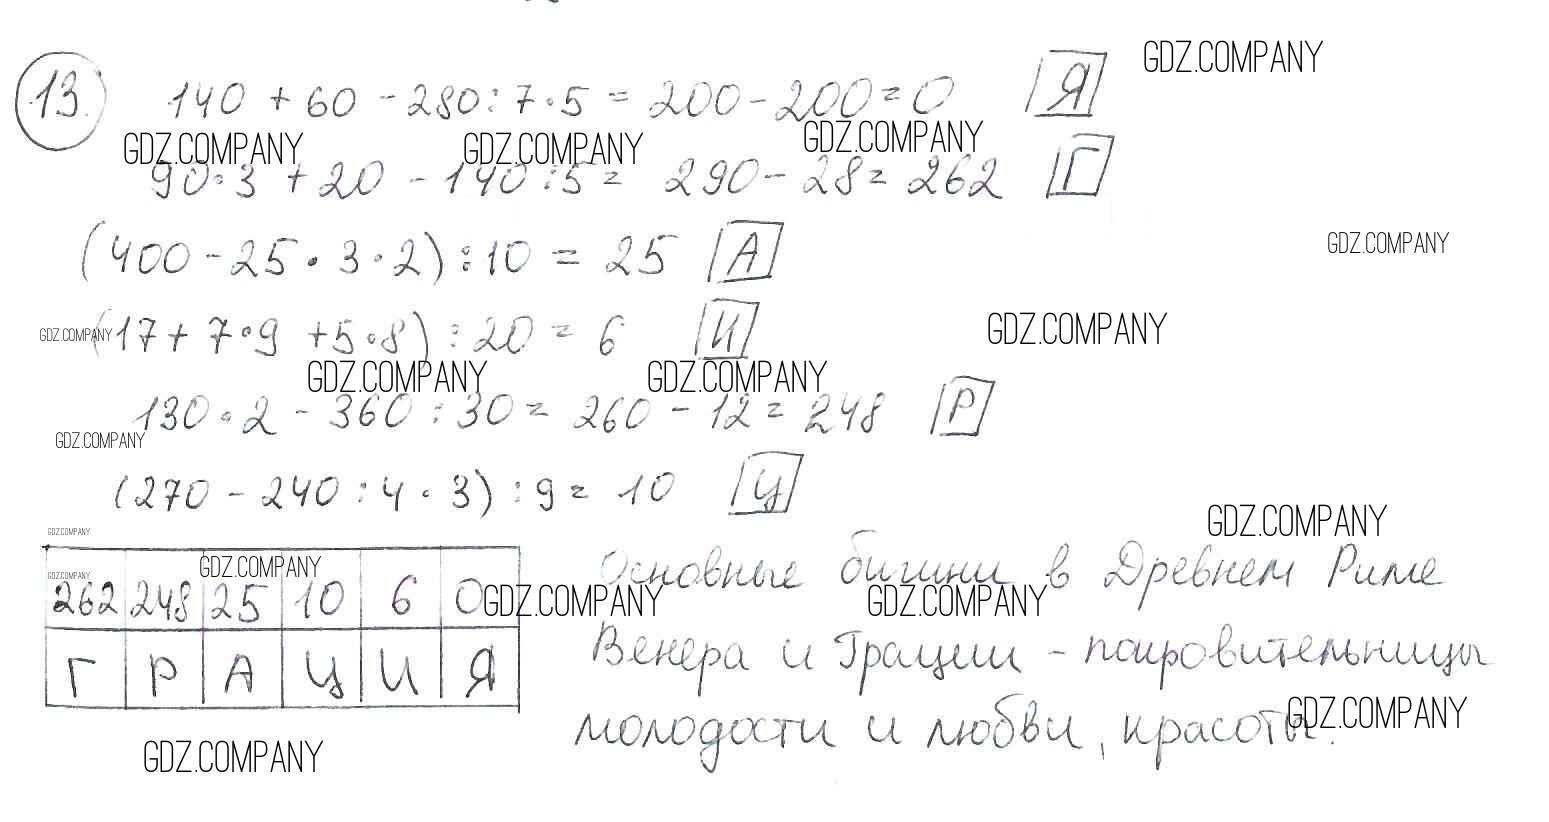 13. 140 + 60 - 280 : 7 · 5 = 200 - 200 = 0 Я
GDZ.COMPANY
GDZ.COMPANY GDZ.COMPANY GDZ.COMPANY
90 · 3 + 20 - 140 : 5 = 290 - 28 = 262 Г
(400 - 25 · 3 · 2) : 10 = 25 А
GDZ.COMPANY
GDZ.COMPANY (17 + 7 · 9 + 5 · 8) : 20 = 6 И
GDZ.COMPANY
GDZ.COMPANY GDZ.COMPANY
130 · 2 - 360 : 30 = 260 - 12 = 248 Р
GDZ.COMPANY
(270 - 240 : 4 · 3) : 9 = 10 Ц
GDZ.COMPANY
GDZ.COMPANY
GDZ.COMPANY GDZ.COMPANY
262 248 25 10 6 0
Г Р А Ц И Я
Основные бигини в Древнем Риме
GDZ.COMPANY GDZ.COMPANY
Венера и Грации - покровительницы
молодости и любви, красоты.
GDZ.COMPANY
GDZ.COMPANY